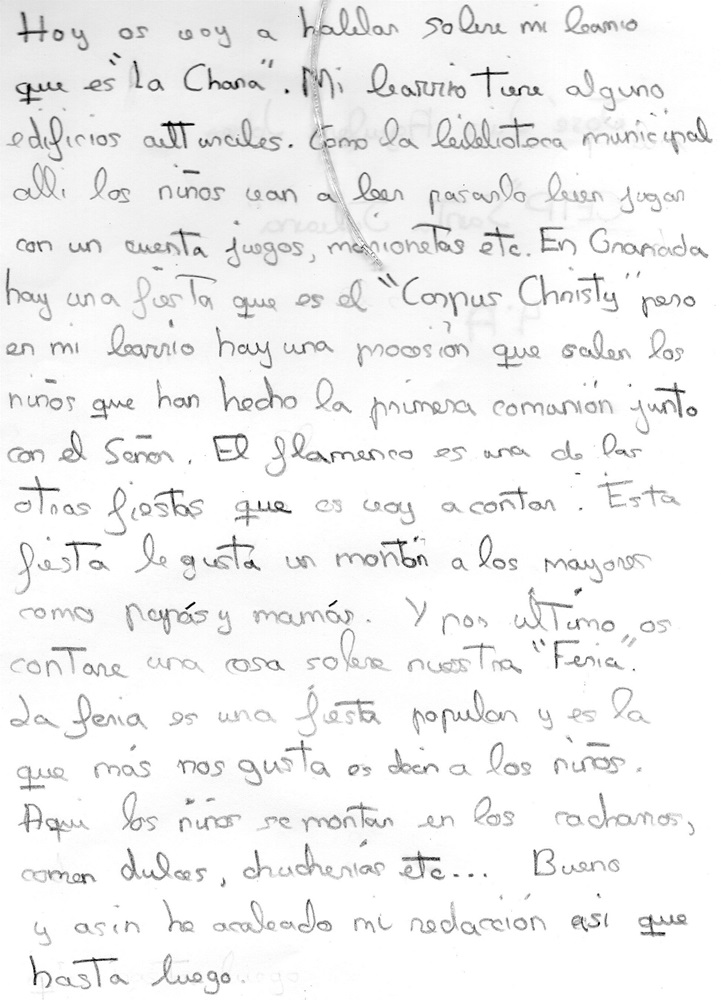 Hoy os voy a hablar sobre mi barrio
que es "La Chana". Mi barrio Tiene alguno
edificios cultturales. Como la biblioteca municipal
alli los niños van a leer pasarlo bien jugar
con un cuenta juegos, marionetas etc. En Granada
hay una fiesta que es el "Corpus Christy" pero
en mi barrio hay una procesión que salen los
niños que han hecho la primera comunión junto
con el Señor. El flamenco es una de las
otras fiestas que os voy a contar. Esta
fiesta le gusta un montón a los mayores
como papás y mamás. Y por último os
contare una cosa sobre nuestra "Feria".
La feria es una fiesta popular y es la
que más nos gusta es decir a los niños.
Aqui los niños se montan en los cacharros,
comen dulces, chucherías etc... Bueno
y asin he acabado mi redacción asi que
hasta luego.